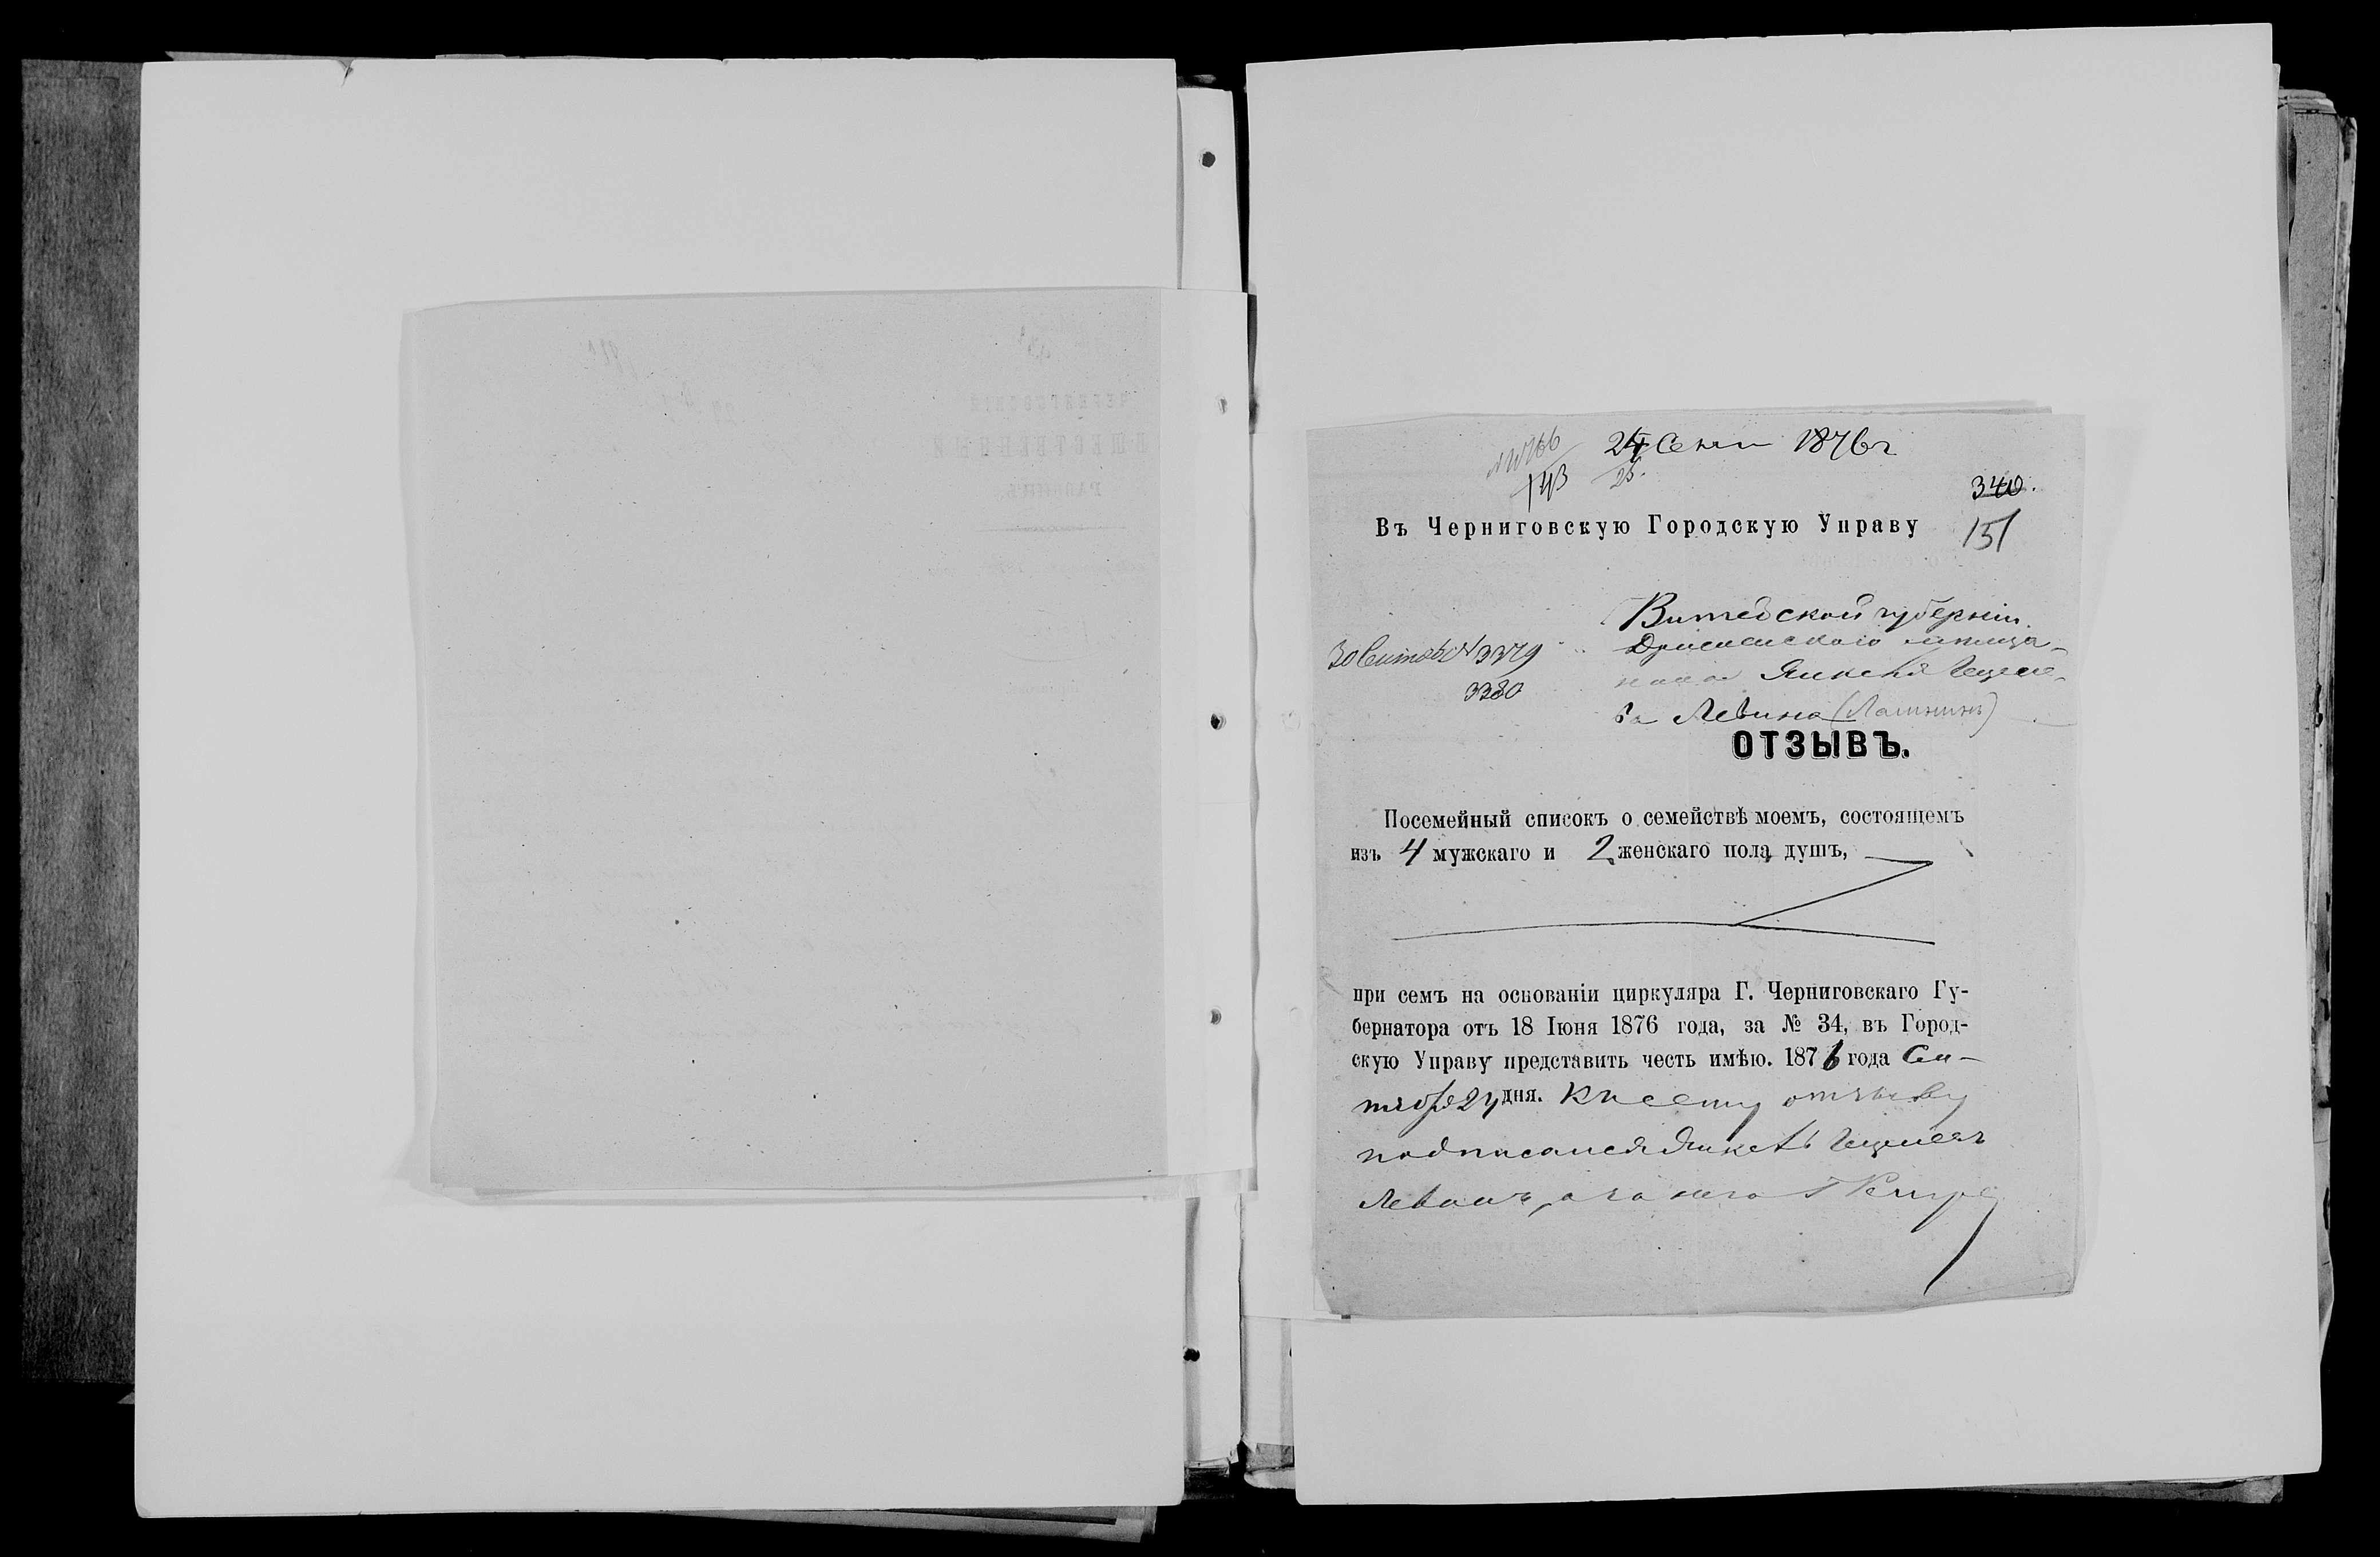 24 Сент 1876 г
25.
143
340.
Въ Черниговскую Городскую Управу
151
Витебской губерніи
Дриссенскаго мѣща-
нина Янкеля
30 Сентяб № 3379
3380
ва Левина
ОТЗЫВЪ.
Посемейный списокъ о семействѣ моемъ, состоящемъ
изъ 4 мужскаго и 2 женскаго пола душъ,
при семъ на основаніи циркуляра Г. Черниговскаго Гу-
бернатора отъ 18 Іюня 1876 года, за № 34, въ Город-
скую Управу представить честь имѣю. 1876 года Сен-
тября 24 дня. Къ сему отзыву
подписался Янкель
Левинъ, а за него